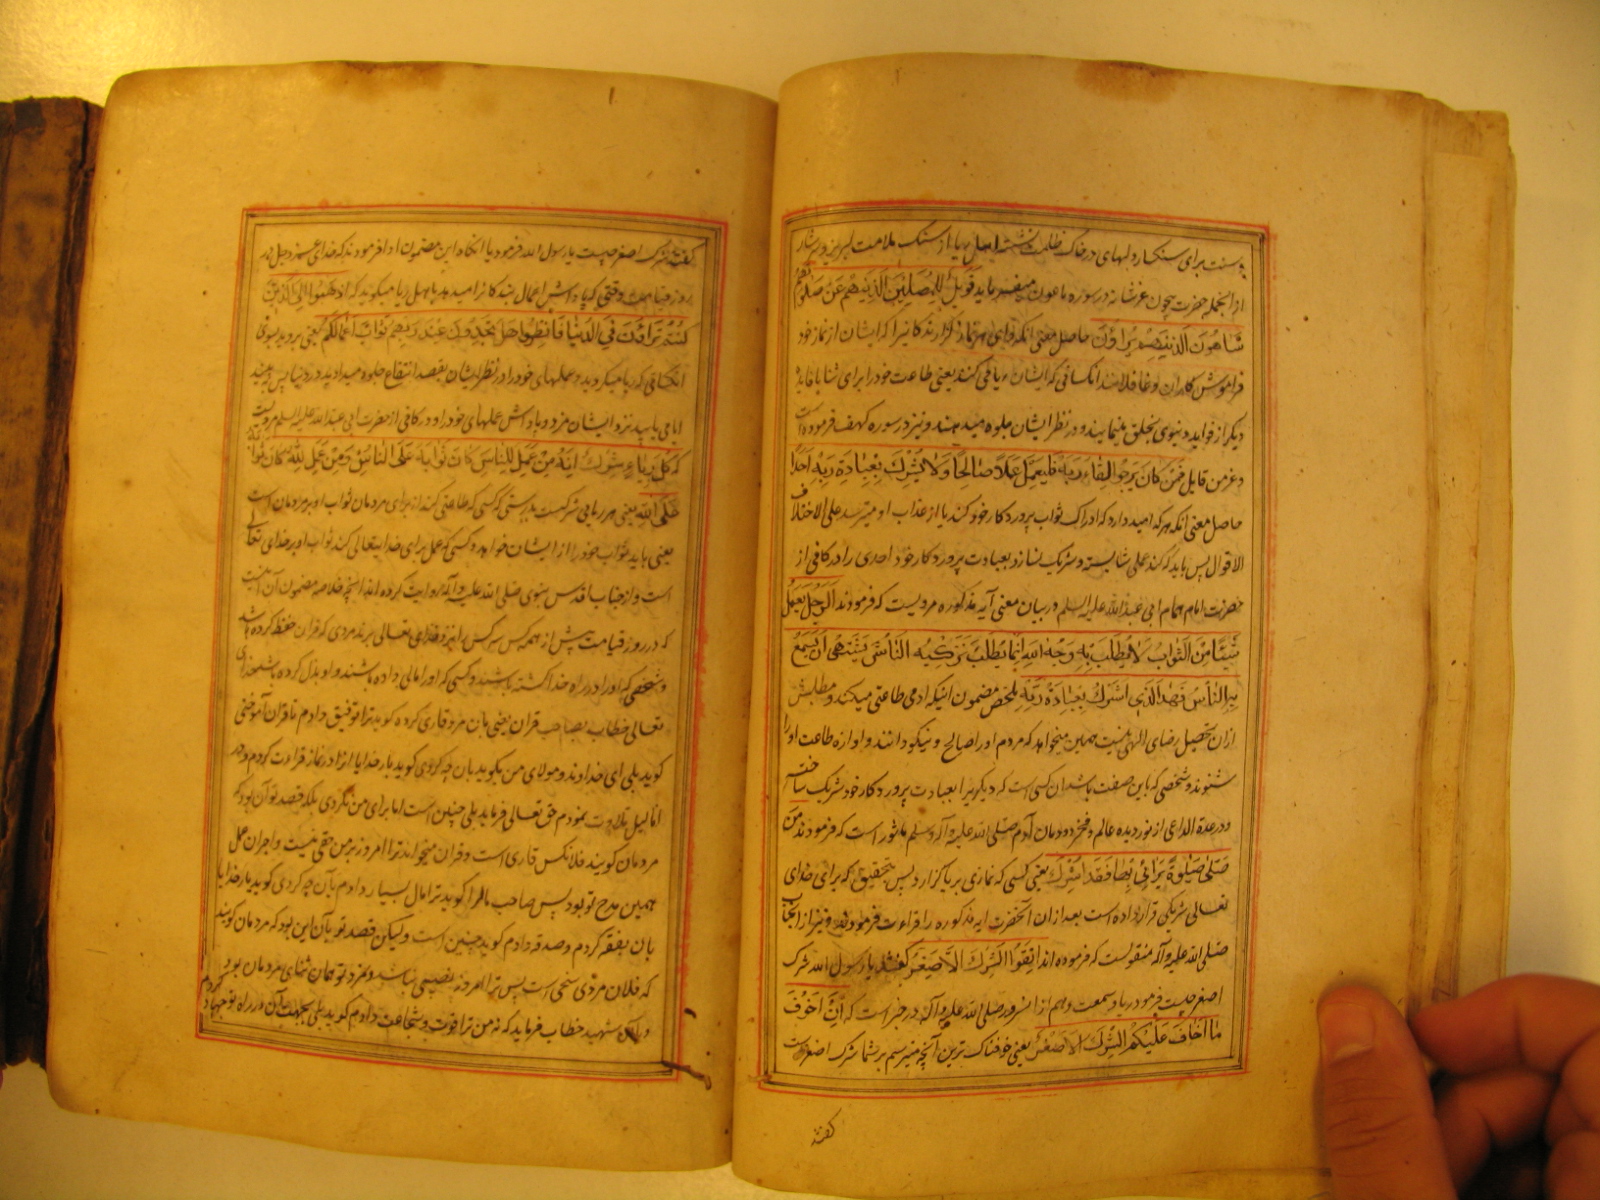 از انجمله حضرت بیچون عز شانه در سوره ماعون میفرماید فَوَیلٌ لِلمُصَلّینَ الَّذینَ هُم عَن صَلوتِهِم
ساهُونَ الَّذینَ هُم یُراؤُنَ حاصل معنی انکه وای بر نماز گزارندکانیرا که ایشان از نماز خود
فراموش کاران و غافلانند انکسانی که ایشان ریا می کنند یعنی طاعت خود را برای
دیکر از فواید دنیوی بخلق مینمایند و در نظر ایشان جلوه میدهند و نیز در سوره کهف فرموده است
و عز من قایل فَمَن کانَ یَرجُو لِقاءَ رَبِّه فَلیَعمَل عَمَلاً صالِحاً وَلا یُشرِک بِعِبادَةِ رَبِّه اَحَداً
حاصل معنی انکه هر که امید دارد که ادراک ثواب پروردکار خود کند یا از عذاب او میترسد علی الاختلاف
الاقوال پس باید که کند عملی شایسته و شریک نسازد بعبادت پروردکار خود احدی را در کافی از
حضرت امام همام ابی عبدالله علیه السلم در بیان معنی آیه مذکوره مرویست که فرمودند اَلرَّجُلُ یَعمَلُ
شَیئاً مِنَ الثَّوابِ لا یَطلُبُ بِه وَجهَ اللهِ اِنَّما یَطلُبُ تَزکِیَةَ النّاسِ یَشتَهی اَن یُسمِعَ
بِهِ النّاسَ فَهذَا الَّذی اَشرَکَ بِعِبادَةِ رَبِّه ملخص مضمون اینکه ادمی طاعتی میکند و مطلبش
ازان تحصیل رضای الهی نیست همین میخواهد که مردم او را صالح و نیکو دانند و اوازه طاعت او را
شنوند و شخصی که باین صفت باشد ان کسی است که دیکریرا بعبادت پروردکار خود شریک ساخته
و در عدة الداعی از نور دیده عالم و فخر دودمان آدم صلی الله علیه و آله وسلم ماثور است که فرمودند من
صَلّی صَلوةً یُرائی بِها فَقَد اَشرَکَ یعنی کسی که نمازی بریا گزارد پس بتحقیق که برای خدای
تعالی شریکی قرار داده است بعد ازان انحضرت ایه مذکوره را قراءت فرمودند و نیز از انجناب
صلی الله علیه وآله منقولست که فرموده اند اِتَّقُوا الشِّرکَ الاَصغَرَ گفتند یا رسول الله شرک
اصغر چیست فرمود ریا و سمعت و هم از انسرور صلی الله علیه و آله در خبر است که اِنَّ اَخوَفَ
ما اَخافُ عَلَیکُمُ الشِّرکُ الاَصغَرُ یعنی خوفناک ترین آنچه میترسم بر شما شرک اصغر است
گفتند
گفتند شرک اصغر چیست یا رسول الله فرمود ریا انکاه این مضمون ادا فرمودند که خدای عز و جل در
روز قیامت وقتی که پاداش اعمال بندکانرا میدهد باهل ریا میکوید که اِذهَبُوا اِلَی الَّذینَ
کُنتُم تُراؤُنَ فِی الدُّنیا فَانظُروا هَل تَجِدُونَ عِندَهُم ثَوابَ اَعمالِکُم یعنی بروید بسوی
انکسانی که ریا میکردید و عملهای خود را در نظر ایشان بقصد انتفاع جلوه میدادید در دنیا پس ببینید
ایا می یابید نزد ایشان مزد و پاداش عملهای خود را و در کافی از حضرت ابی عبدالله علیه السلم مرویست
که کُلُّ رِیاءٍ شِرکٌ اِنَّهُ مَن عَمِلَ لِلنّاسِ کانَ ثَوابُهُ عَلَی النّاسِ وَمَن عَمِلَ لِلّهِ کانَ ثَوابُهُ
عَلَی اللهِ یعنی هر ریایی شرکست بدرستی که کسی که طاعتی کند از برای مردمان ثواب او بر مردمان است
یعنی باید ثواب خود را از ایشان خواهد و کسی که عمل برای خدایتعالی کند ثواب او بر خدای تعالی
است و از جناب اقدس نبوی صلی الله علیه و آله روایت کرده اند انچه خلاصه مضمون آن اینست
که در روز قیامت پیش از همه کس سه کس را نزد خدای تعالی برند مردی که قران حفظ کرده باشد
و شخصی که او را در راه خدا کشته باشند و کسی که او را مالی داده باشند و او بذل کرده باشد خدای
تعالی خطاب بصاحب قران یعنی بان مرد قاری کرده کوید ترا توفیق دادم تا قران آموختی
کوید بلی ای خداوند و مولای من بکوید بان چه کردی کوید بار خدایا انرا در نماز قراءت کردم و در
اناء لیل تلاوت نمودم حق تعالی فرماید بلی چنین است اما برای من نکردی بلکه قصد تو آن بود که
مردمان کویند فلانکس قاری است و قران میخواند ترا امروز بر من حقی نیست و اجر ان عمل
همین مدح تو بود پس صاحب مالرا کوید ترا مال بسیار دادم بآن چه کردی کوید بار خدایا
بان بفقر کردم و صدقه دادم کوید چنین است ولیکن قصد تو بآن این بود که مردمان کویند
که فلان مردی سخی است پس ترا امروز نصیبی نباشد و مزد تو همان ثنای مردمان بود
شهید خطاب فرماید که نه من ترا قوت و شجاعت دادم کوید بلی بجهت آن در راه تو جهاد کردم